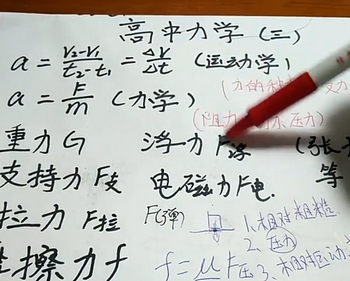 高中力学（三）
a = \frac{v_2-v_1}{t_2-t_1} = \frac{Δv}{Δt}（运动学）
a = \frac{F}{m}（力学）
重力G 浮力F浮
支持力F支 电磁力F电. 等
拉力 F拉 F(弹) 1.相对粗糙
2.压力
擦力f f = μF压 3.相对运动